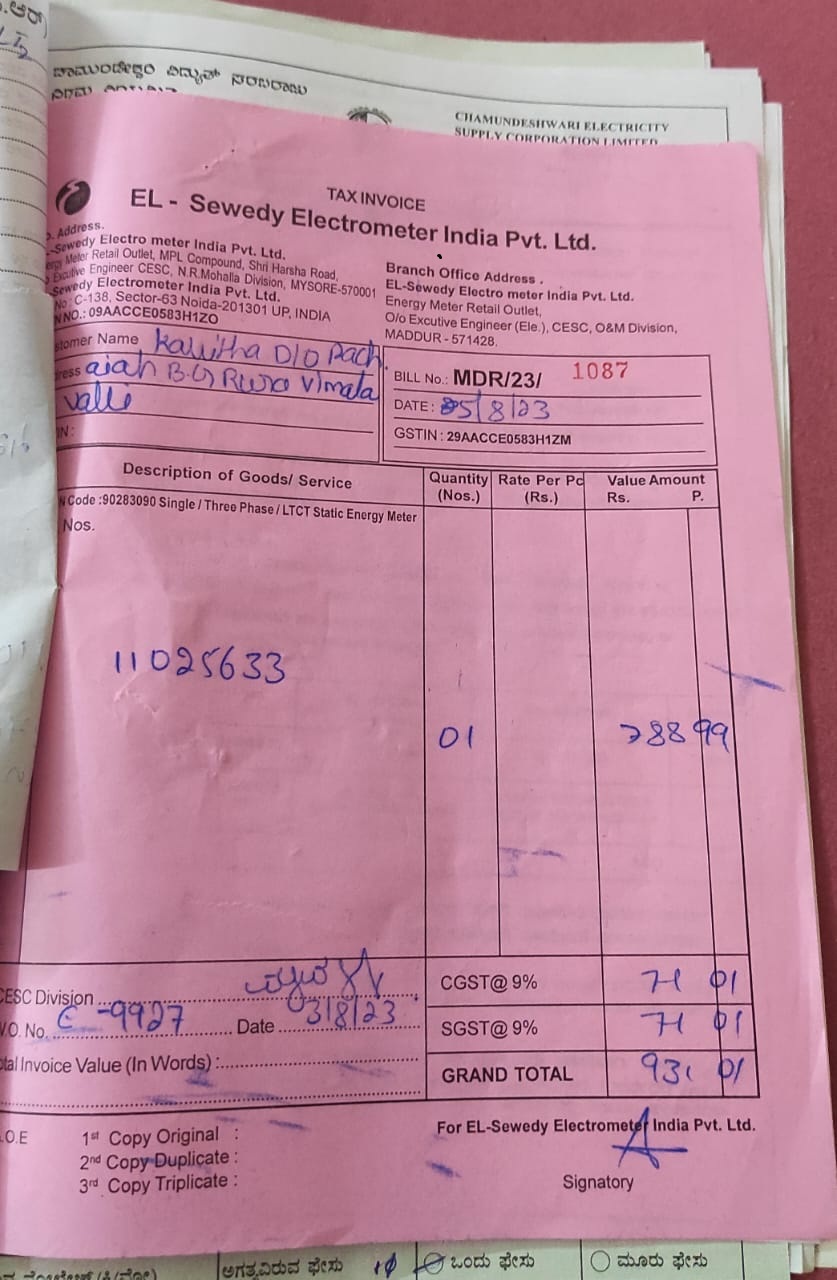 ಚಾಮುಂಡೇಶ್ವರಿ ವಿದ್ಯುತ್ ಸರಬರಾಜು
CHAMUNDESHWARI ELECTRICITY
SUPPLY CORPORATION LIMITED
TAX INVOICE
EL - Sewedy Electrometer India Pvt. Ltd.
Address.
Sewedy Electro meter India Pvt. Ltd.
Meter Retail Outlet, MPL Compound, Shri Harsha Road,
Excutive Engineer CESC, N.R.Mohalla Division, MYSORE-570001
Sewedy Electrometer India Pvt. Ltd.
C-138, Sector-63 Noida-201301 UP, INDIA
NO.: 09AACCE0583H1ZO
Branch Office Address .
EL-Sewedy Electro meter India Pvt. Ltd.
Energy Meter Retail Outlet,
O/o Excutive Engineer (Ele.), CESC, O&M Division,
MADDUR - 571428.
Name Kavitha D/O Rach
aiah B.G Pura Vimala
Valli
BILL No.: MDR/23/ 1087
DATE : 5/8/23
GSTIN : 29AACCE0583H1ZM
Description of Goods/ Service Quantity (Nos.) Rate Per Pc (Rs.) Value Amount Rs. P.
Code :90283090 Single / Three Phase / LTCT Static Energy Meter
Nos.
11025633
01 788 99
CESC Division
CGST@ 9% 71 01
No. C-9927 Date 03/8/23
SGST@ 9% 71 01
Invoice Value (In Words) :
GRAND TOTAL 931 01
For EL-Sewedy Electrometer India Pvt. Ltd.
.O.E 1st Copy Original :
2nd Copy Duplicate :
3rd Copy Triplicate :
Signatory
ಅಗತ್ಯವಿರುವ ಫೇಸು 1ø ಒಂದು ಫೇಸು ಮೂರು ಫೇಸು